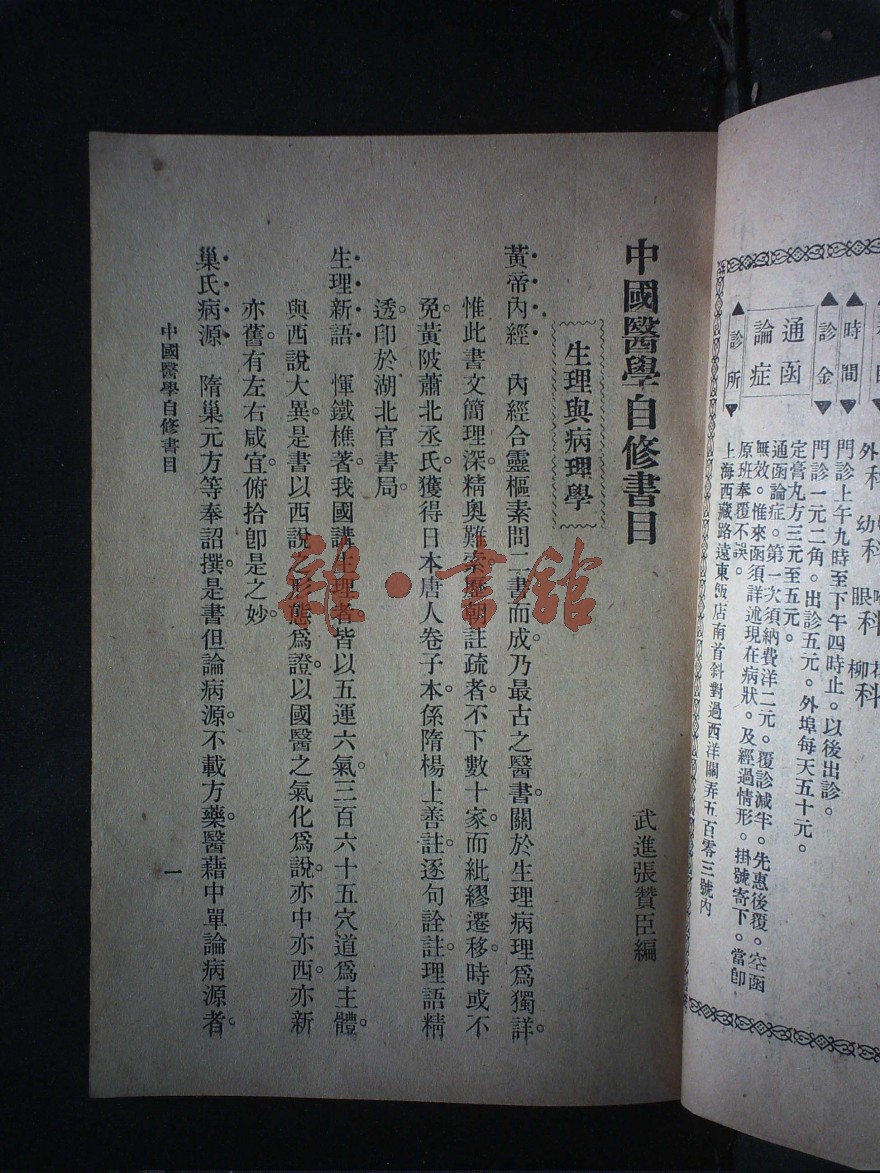 外科 幼科 眼科 柳科
▲時間▼
門診上午九時至下午四時止。以後出診。
▲診金▼
門診一元二角。出診五元。外埠每天五十元。
定膏九方三元至五元。
通函論症
通函論症。第一次須納費洋二元。覆診減半。先惠後覆。空函
無效。惟來函須詳述現在病狀。及經過情形。掛號寄下。當卽
原班奉覆不誤。
▲診所▼
上海西藏路遠東飯店南首斜對過西洋關弄五百零三號內
中國醫學自修書目
武進張贊臣編
生理與病理學
黃帝內經 內經合靈樞素問二書而成。乃最古之醫書。關於生理病理爲獨詳。
惟此書文簡理深。精奧難索。歷朝註疏者。不下數十家。而紕繆遷移。時或不
免。黃陂蕭北丞氏。獲得日本唐人卷子本。係隋楊上善註。逐句詮註。理語精
透。印於湖北官書局。
生理新語 惲鐵樵著。我國講生理者。皆以五運六氣。三百六十五穴道爲主體。
與西說大異。是書以西說之形態爲證。以國醫之氣化爲說。亦中亦西。亦新
亦舊。有左右咸宜。俯拾卽是之妙。
巢氏病源 隋巢元方等奉詔撰。是書但論病源。不載方藥。醫藉中單論病源者。
中國醫學自修書目
一
龍·書館